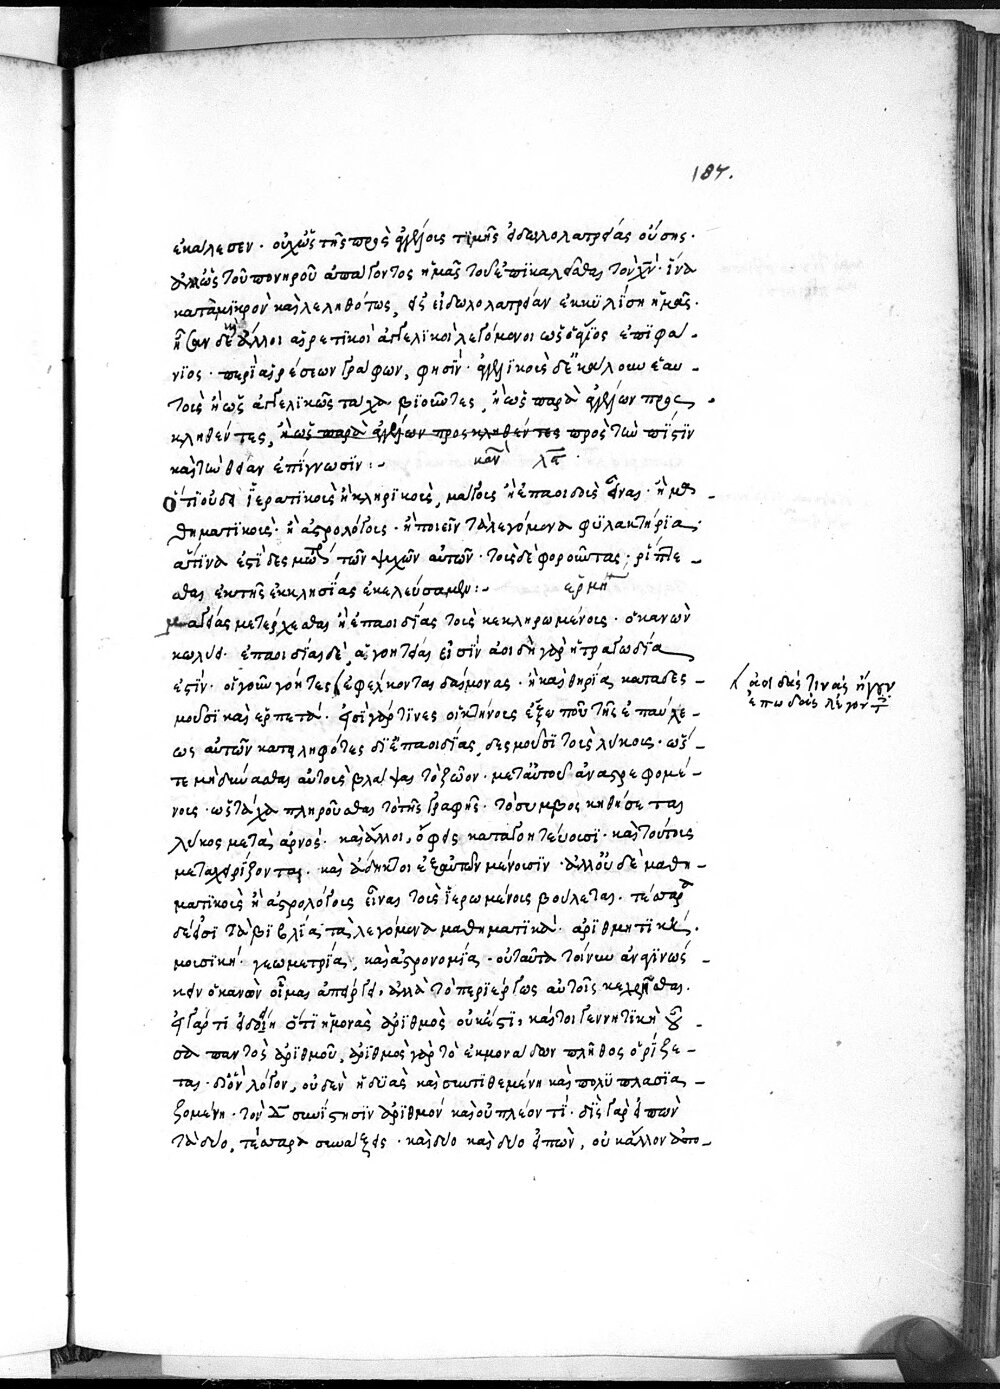 187.
ἐκάλεσεν · οὐχ ὡς τῆς πρὸς ἀγγέλοις τιμῆς εἰδωλολατρείας οὔσης ·
ἀλλ' ὡς τοῦ πονηροῦ ἀπάγοντος ἡμᾶς τοῦ ἐπικαλεῖσθαι τὸν χν̅ · ἵνα
κατὰ μικρὸν καὶ λεληθότως, εἰς εἰδωλολατρείαν ἐκκυλίση ἡμᾶς ·
ἦσαν δὲ καὶ ἄλλοι αἱρετικοὶ ἀγγελικοὶ λεγόμενοι ὡς ὁ ἅγιος ἐπιφα-
νιος · περὶ αἱρέσεων γράφων, φησίν · ἀγγελικοὺς δὲ ἐκάλουν ἑαυ-
τοὺς ἢ ὡς ἀγγελικῶς τάχα βιοῦντες, ἢ ὡς παρὰ ἀγγέλων προς
κληθέντες, ἢ ὡς παρὰ ἀγγέλων προσκληθέντες πρὸς τὴν πίστιν
καὶ τὴν θείαν ἐπίγνωσιν :- κανὼν λϛ ·
ὅτι οὐ δεῖ ἱερατικοὺς ἢ κληρικοὺς, μάγους ἢ ἐπαοιδοὺς εἶναι · ἢ μα-
θηματικοὺς · ἢ ἀστρολόγους · ἢ ποιεῖν τὰ λεγόμενα φυλακτήρια ·
ἅτινά ἐστι δεσμωτήρια τῶν ψυχῶν αὐτῶν · τοὺς δὲ φοροῦντας, ῥίπτε-
σθαι ἐκ τῆς ἐκκλησίας ἐκελεύσαμεν :- ἑρμη
μαγείας μετέρχεσθαι ἢ ἐπαοιδίας τοὺς κεκληρωμένους · ὁ κανὼν
κωλύει · ἐπαοιδίας δὲ, αἱ γοητείαι εἰσίν ἀοιδὴ γὰρ ἡ τραγωδία
ἐστίν · οἱ γοῦν γόητες ἐφέλκονται δαίμονας · ἢ καὶ θηρία καταδεσ-
μοῦσι καὶ ἑρπετά · εἰσὶ γάρ τινες οἳ κτήνους ἔξω που τῆς ἐπαύλε-
ως αὐτῶν καταληφότες δι' ἐπαοιδίας, δεσμοῦσι τοὺς λύκους · ὥσ-
τε μὴ δύνασθαι αὐτοὺς βλάψαι τὸ ζῶον · μετ' αὐτοῦ ἀναστρεφομέ-
νους · ὡς τάχα πληροῦσθαι τὸ τῆς γραφῆς · τὸ συμβοσκηθήσεται
λύκος μετὰ ἀρνός · καὶ ἄλλοι, ὄφεις καταγοητεύουσι · καὶ τούτους
μεταχειρίζονται · καὶ ἄδηκτοι ἐξ αὐτῶν μένουσιν · ἀλλ' οὐδὲ μαθη-
ματικοὺς ἢ ἀστρολόγους εἶναι τοὺς ἱερωμένους βούλεται · τέσσαρα
δέ εἰσι τὰ βιβλία τὰ λεγόμενα μαθηματικά · ἀριθμητική ·
μουσική · γεωμετρία, καὶ ἀστρονομία · οὐ ταῦτα τοίνυν ἀναγινώσ-
κειν ὁ κανὼν οἶμαι ἀπείργει, ἀλλὰ τὸ περιέργως αὐτοῖς κεχρῆσθαι ·
εἰ γάρ τι εἰδείη ὅτι ἡ μονὰς ἀριθμὸς οὐκ ἔστι, καίτοι γεννητικὴ οὖ-
σα παντὸς ἀριθμοῦ, ἀριθμὸς γὰρ τὸ ἐκ μονάδων πλῆθος ὁρίζε-
ται · δι' ὃν λόγον, οὐδὲν ἡ δυὰς καὶ συντιθεμένη καὶ πολυπλασια-
ζομένη · τὸν δ̅ συνίστησιν ἀριθμόν καὶ οὐ πλέον τί · δὶς γὰρ εἰπὼν
τὰ δύο, τέσσαρα συνάξεις · καὶ δύο καὶ δύο εἰπὼν, οὐκ ἄλλον ἀπο-
ἀοιδάς τινάς ἤγουν
ἐπωδὰς λέγοντ